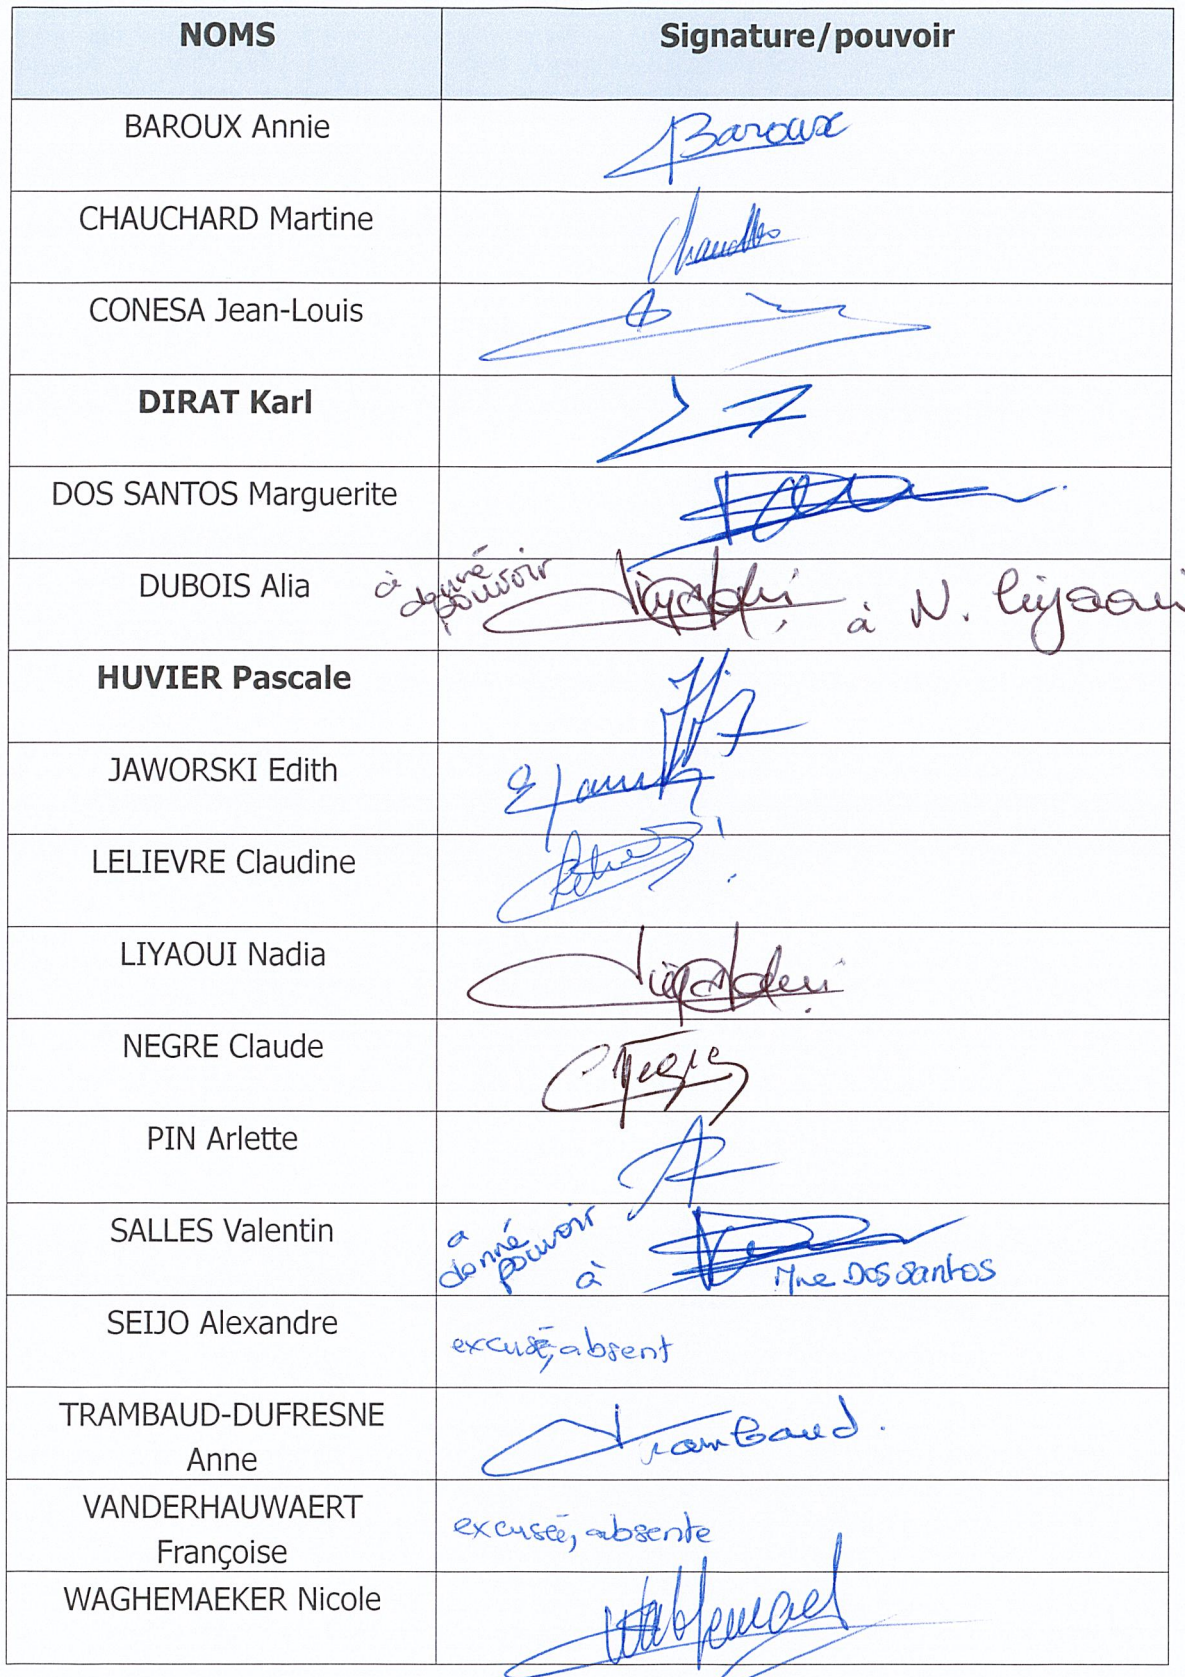 NOMS Signature/pouvoir
BAROUX Annie Baroux
CHAUCHARD Martine
CONESA Jean-Louis
DIRAT Karl
DOS SANTOS Marguerite
DUBOIS Alia à donné pouvoir à N. Liyaoui
HUVIER Pascale
JAWORSKI Edith
LELIEVRE Claudine
LIYAOUI Nadia
NEGRE Claude CNegre
PIN Arlette
SALLES Valentin a donné pouvoir à Mme Dos Santos
SEIJO Alexandre excusé, absent
TRAMBAUD-DUFRESNE
Anne Trambaud.
VANDERHAUWAERT
Françoise excusée, absente
WAGHEMAEKER Nicole